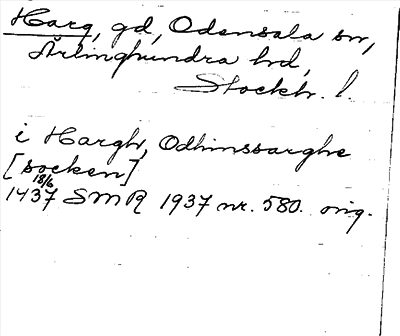 Harg, gd, Odensala sn,
Ärlinghundra hd,
Stockh. l.
i Hargh, Odhinssarghe
[socken]
18/6
1437 SMR 1937 nr. 580. orig.